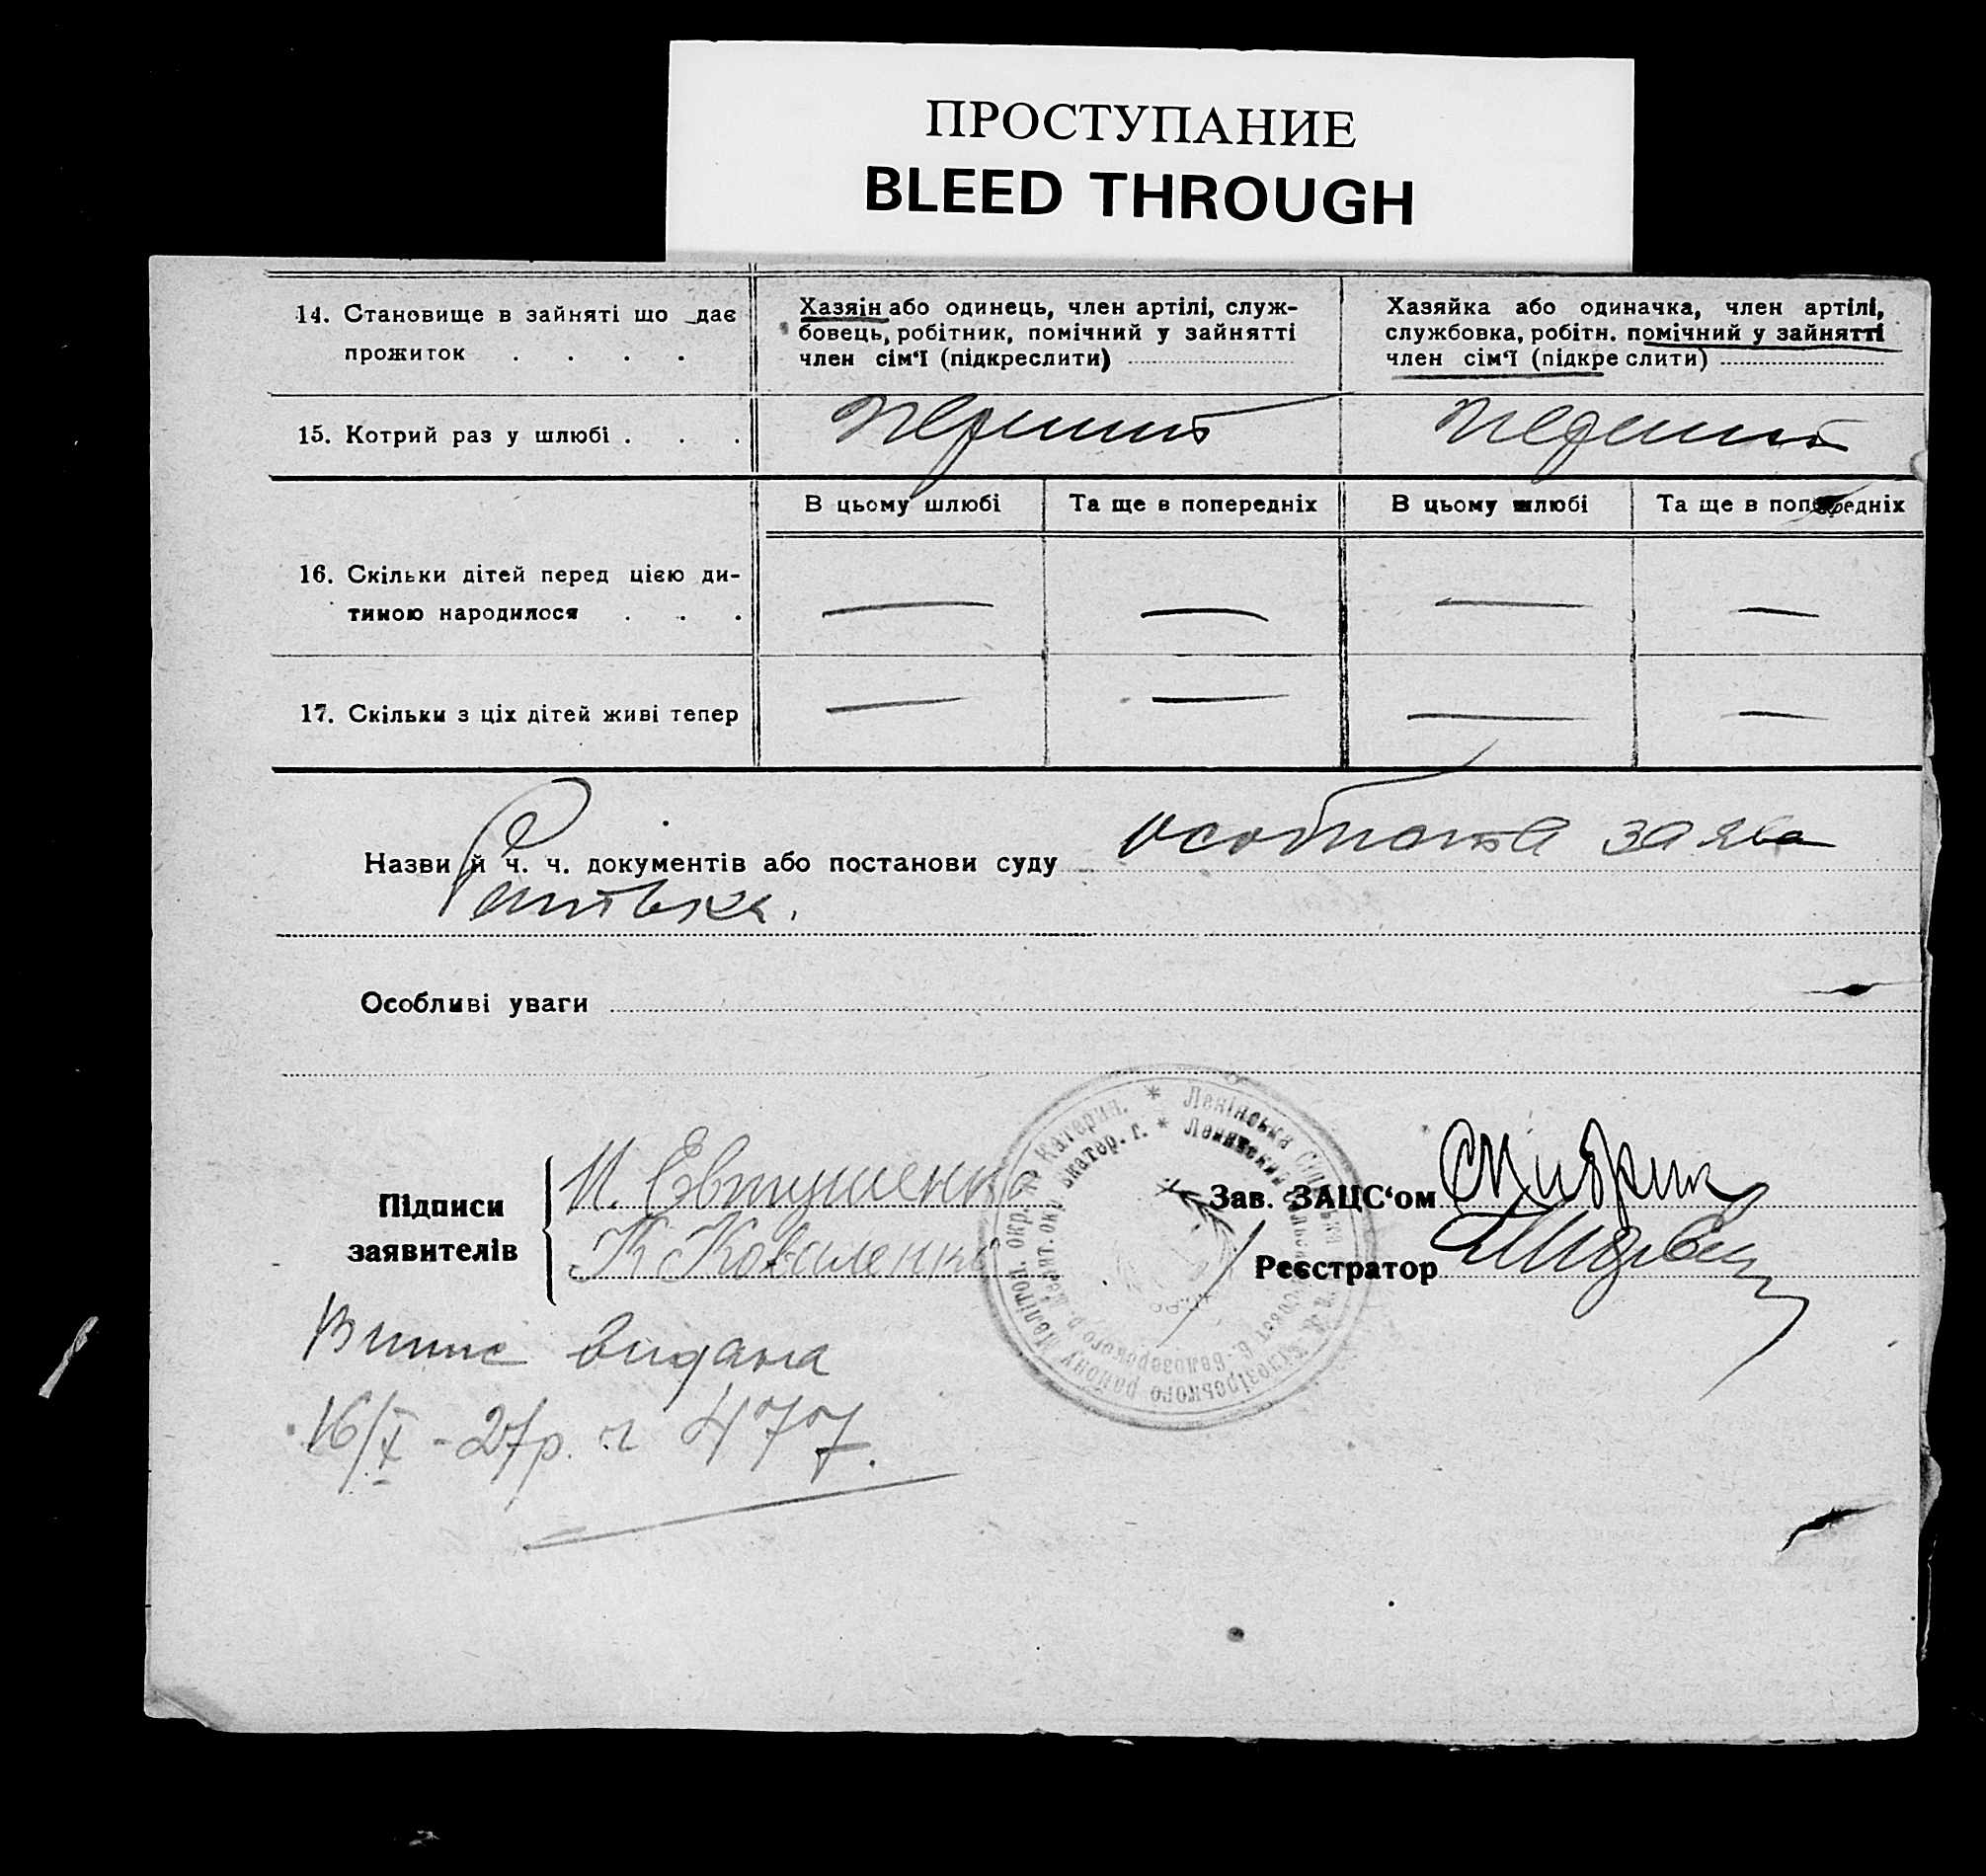 ПРОСТУПАНИЕ
BLEED THROUGH
14. Становище в зайняті що дає
прожиток . . . .
Хазяін або одинець, член артілі, служ-
бовець, робітник, помічний у зайнятті
член сім‘ї (підкреслити)
Хазяйка або одиначка, член артілі,
службовка, робітн. помічний у зайнятті
член сім‘ї (підкреслити)
15. Котрий раз у шлюбі . . .
перший
перший
В цьому шлюбі
Та ще в попередніх
В цьому шлюбі
Та ще в попередніх
16. Скільки дітей перед цією ди-
тиною народилося . . .
— — — —
17. Скільки з ціх дітей живі тепер
— — — —
Назви й ч. ч. документів або постанови суду
заява
батька.
Особливі уваги
Підписи
заявителів
И. Евтушенко
К Коваленко
Зав. ЗАЦС‘ом
Реєстратор
Ленінська Сільська Рада Білозірського району Мелітоп. окр. на Катерин.
видана
16/X - 27р. ч 477.